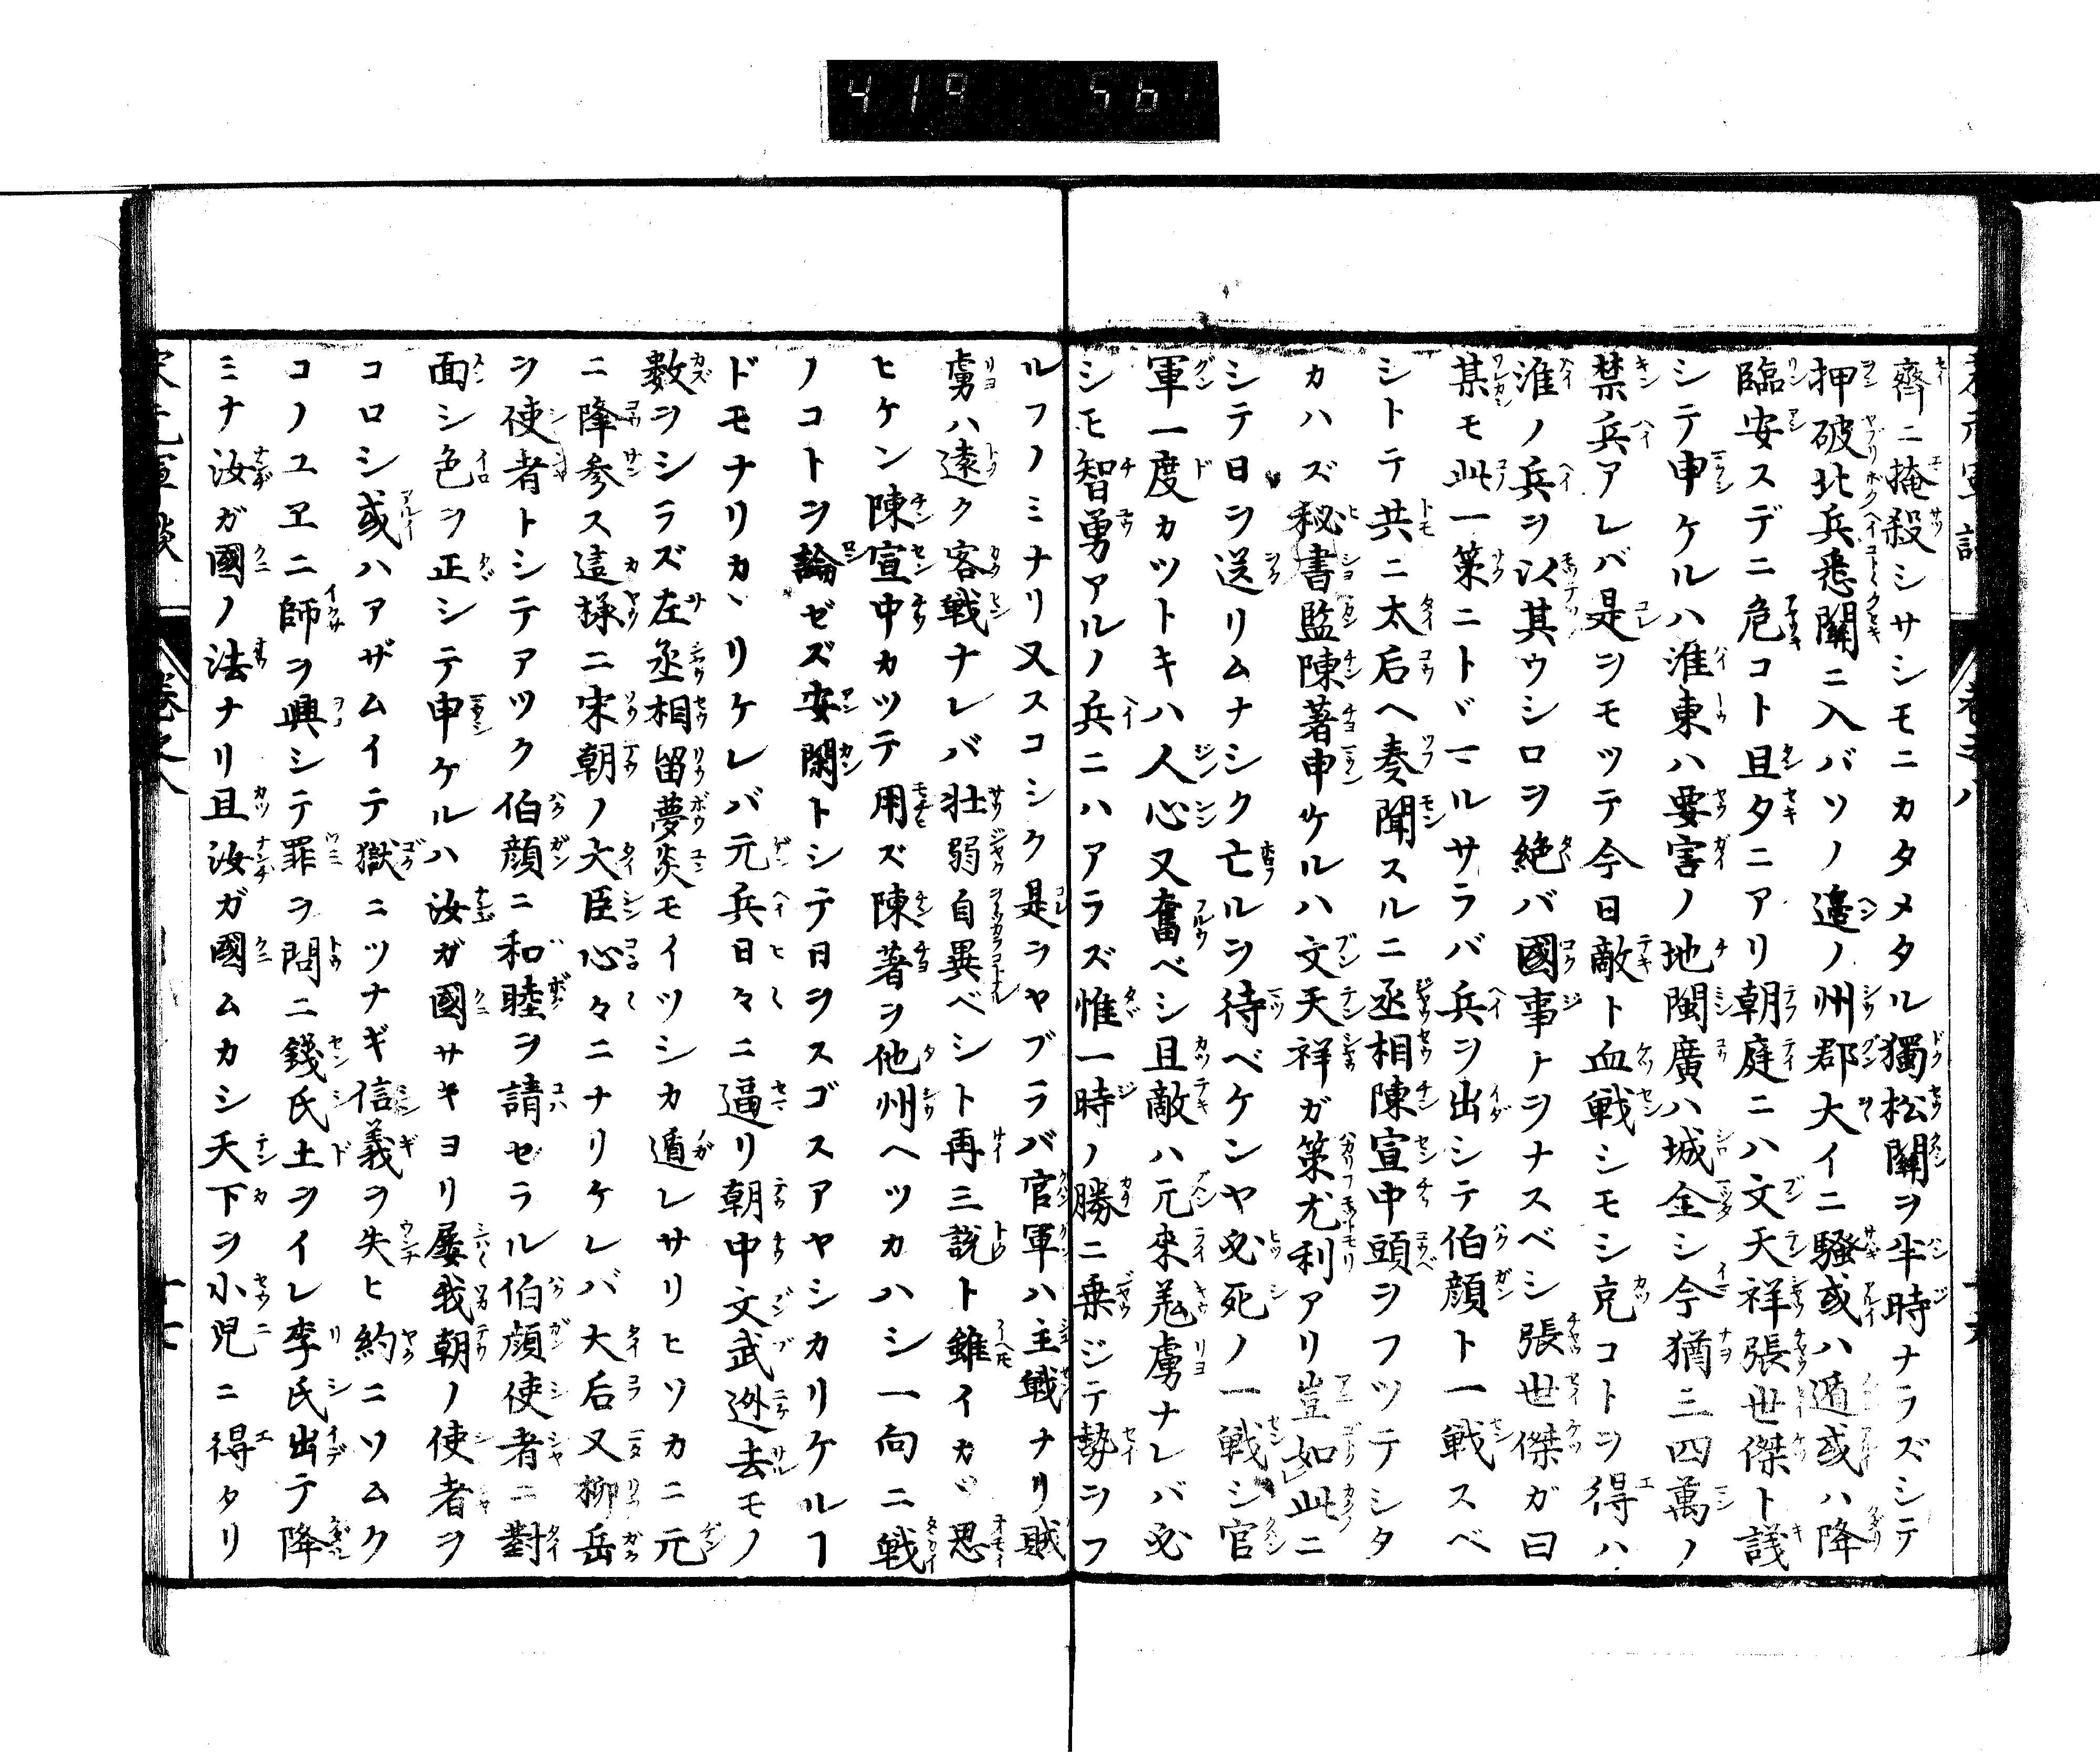 419 56
齊ニ掩殺シサシモニカタメタル獨松關ヲ半時ナラズシテ
押破北兵悉關ニ入バソノ邉ノ州郡大イニ騒或ハ遁或ハ降
臨安スデニ危コト且タニアリ朝庭ニハ文天祥張世傑ト議
シテ申ケルハ淮東ハ要害ノ地閩廣ハ城全シ今猶三四萬ノ
禁兵アレバ是ヲモツテ今日敵ト血戦シモシ克コトヲ得ハ
淮ノ兵ヲ以其ウシロヲ絶バ國事トヲナスベシ張世傑ガ曰
某モ此一策ニトヾマルサラバ兵ヲ出シテ伯顔ト一戦スベ
シトテ共ニ太后ヘ奏聞スルニ丞相陳宣中頭ヲフツテシタ
カハズ秘書監陳著申ケルハ文天祥ガ策尤利アリ豈如此ニ
シテ日ヲ送リムナシク亡ルヲ待ベケンヤ必死ノ一戦シ官
軍一度カツトキハ人心又奮ベシ且敵ハ元來羗虜ナレバ必
シモ智勇アルノ兵ニハアラズ惟一時ノ勝ニ乗ジテ勢ヲフ
ルフノミナリ又スコシク是ヲヤブラバ官軍ハ主戦ナリ賊
虜ハ遠ク客戦ナレバ壮弱自異ベシト再三説ト雖イカヾ思
ヒケン陳宣中カツテ用ズ陳著ヲ他州ヘツカハシ一向ニ戦
ノコトヲ論ゼズ安閑トシテ日ヲスゴスアヤシカリケルヿ
ドモナリカヽリケレバ元兵日々ニ逼リ朝中文武迯去モノ
数ヲシラズ左丞相留夢炎モイツシカ遁レサリヒソカニ元
ニ降参ス這様ニ宋朝ノ大臣心々ニナリケレバ大后又柳岳
ヲ使者トシテアツク伯顔ニ和睦ヲ請セラル伯顔使者ニ對
面シ色ヲ正シテ申ケルハ汝ガ國サキヨリ屡我朝ノ使者ヲ
コロシ或ハアザムイテ獄ニツナギ信義ヲ失ヒ約ニソムク
コノユヱニ師ヲ興シテ罪ヲ問ニ錢氏土ヲイレ李氏出テ降
ミナ汝ガ國ノ法ナリ且汝ガ國ムカシ天下ヲ小児ニ得タリ